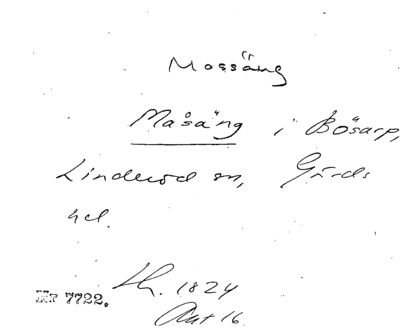 Mossäng
Måsäng i Bösarp,
Linderöd sn, Gärds
hd.
Lh. 1824
Akt 16
Nr 7722.